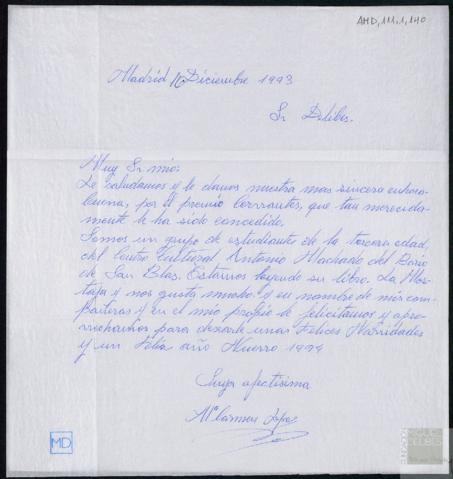 AMD, 111, 1, 140
Madrid 16 Diciembre 1993
Sr Delibes.
Muy Sr mio:
Le saludamos y le damos nuestra mas sincera enhora-
buena, por el premio Cervantes, que tan merecida-
mente le ha sido concedido.
Somos un grupo de estudiante de la tercera edad,
del Centro Cultural Antonio Machado del Bario
de San Blas. Estamos leyendo su libro. La Mor-
taja y nos gusta mucho. y en nombre de mis com-
pañeras y en el mio propio le felicitamos y apro-
vechamos para desearle unas Felices Navidades
y un Feliz año Nuevo 1994
Suya afectisima
Mª Carmen Lopez
MD